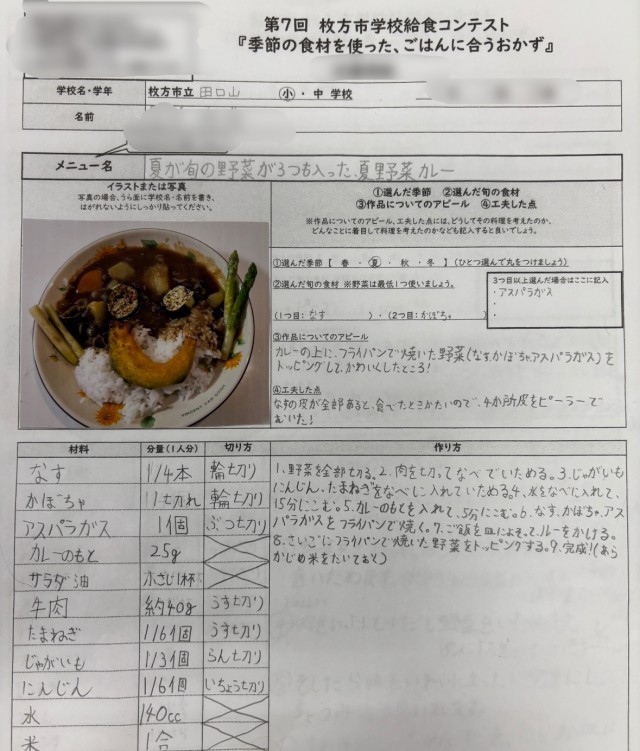 第7回 枚方市学校給食コンテスト
『季節の食材を使った、ごはんに合うおかず』
学校名・学年 枚方市立 田口山 小・中 学校
名前
メニュー名 夏が旬の野菜が3つも入った、夏野菜カレー
イラストまたは写真
写真の場合、うら面に学校名・名前を書き、
はがれないようにしっかり貼ってください。
①選んだ季節 ②選んだ旬の食材
③作品についてのアピール ④工夫した点
※作品についてのアピール、工夫した点には、どうしてその料理を考えたのか、
どんなことに着目して料理を考えたのかなども記入すると良いでしょう。
①選んだ季節【 春 ・ 夏 ・ 秋 ・ 冬 】(ひとつ選んで丸をつけましょう)
②選んだ旬の食材 ※野菜は最低1つ使いましょう。
(1つ目: なす )・(2つ目: かぼちゃ )
3つ目以上選んだ場合はここに記入
・アスパラガス
・
・
③作品についてのアピール
カレーの上に、フライパンで焼いた野菜(なす、かぼちゃ、アスパラガス)を
トッピングして、かわいくしたところ!
④工夫した点
なすの皮が全部あると、食べたときかたいので、4か所皮をピーラーで
むいた!
材料 分量(1人分) 切り方 作り方
なす 1/4本 輪切り
かぼちゃ 1切れ 輪切り
アスパラガス 1個 ぶつ切り
カレーのもと 25g
サラダ油 小さじ1杯
牛肉 約40g うす切り
たまねぎ 1/6個 うす切り
じゃがいも 1/3個 らん切り
にんじん 1/6個 いちょう切り
水 140cc
米 1合
1、野菜を全部切る。2、肉を切ってなべでいためる。3、じゃがいも
にんじん、たまねぎをなべに入れていためる。4、水をなべに入れて、
15分にこむ。5、カレーのもとを入れて、5分にこむ。6、なす、かぼちゃ、アス
パラガスをフライパンで焼く。7、ご飯を皿によそって、ルーをかける。
8、さいごにフライパンで焼いた野菜をトッピングする。9、完成!(あら
かじめ米をたいておく)